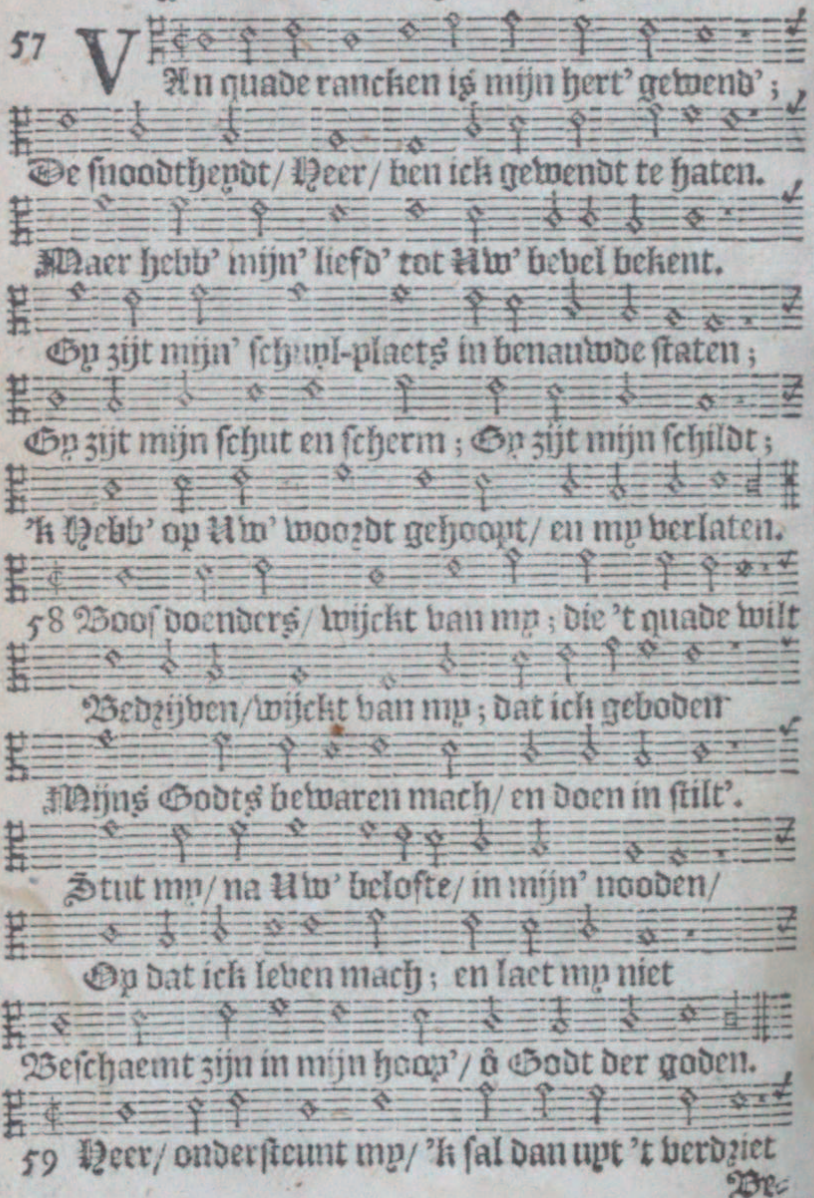 57 VAn quade rancken is mijn hert' gewend';
De snoodtheydt/ Heer/ ben ick gewendt te haten.
Maer hebb' mijn' liefd' tot Uw' bevel bekent.
Gy zijt mijn' schuyl-plaets in benauwde staten;
Gy zijt mijn schut en scherm; Gy zijt mijn schildt;
'k Hebb' op Uw' woordt gehoopt/ en my verlaten.
58 Boosdoenders/ wijckt van my; die 't quade wilt
Bedrijven/wijckt van my; dat ick geboden
Mijns Godts bewaren mach/ en doen in stilt'.
Stut my/ na Uw' belofte/ in mijn' nooden/
Op dat ick leven mach; en laet my niet
Beschaemt zijn in mijn hoop'/ ô Godt der goden.
59 Heer/ ondersteunt my/ 'k sal dan uyt 't verdriet
Be-